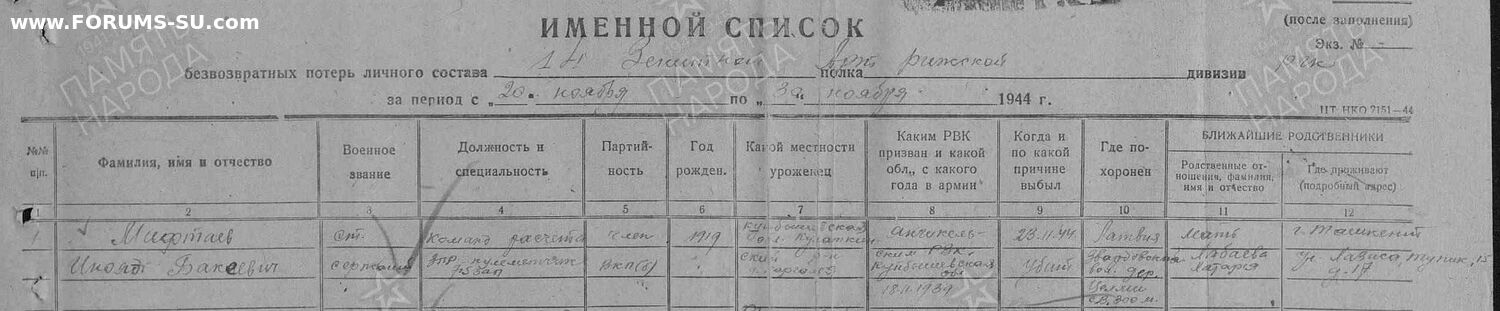 www.FORUMS-SU.com
ИМЕННОЙ СПИСОК
(после заполнения)
Экз. №
безвозвратных потерь личного состава 14 Зенитной Арт полка рижской дивизии ргк
за период с „20" ноября по „30" ноября 1944 г.
ЦТ НКО 7151—44
ПАМЯТЬ НАРОДА
№№ п/п.
Фамилия, имя и отчество
Военное звание
Должность и специальность
Партий- ность
Год рожден.
Какой местности уроженец
Каким РВК призван и какой обл., с какого года в армии
Когда и по какой причине выбыл
Где по- хоронен
БЛИЖАЙШИЕ РОДСТВЕННИКИ
Родственные от- ношения, фамилия, имя и отчество
Где проживают (подробный адрес)
1 2 3 4 5 6 7 8 9 10 11 12
1 Мифтаев ст. Команд расчета член 1919 Куйбышевская 23.11.44 Латвия мать г. Ташкент
Бакеевич сержант ВКП(б) ским РВК Куйбышевская убит тупик, 15
обл д. 17
18.11.1939
СВ. 300 м.